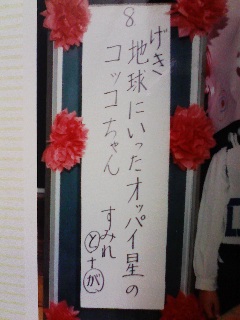 8
げき
地球にいったオッパイ星の
コッコちゃん
すみれ
と+が